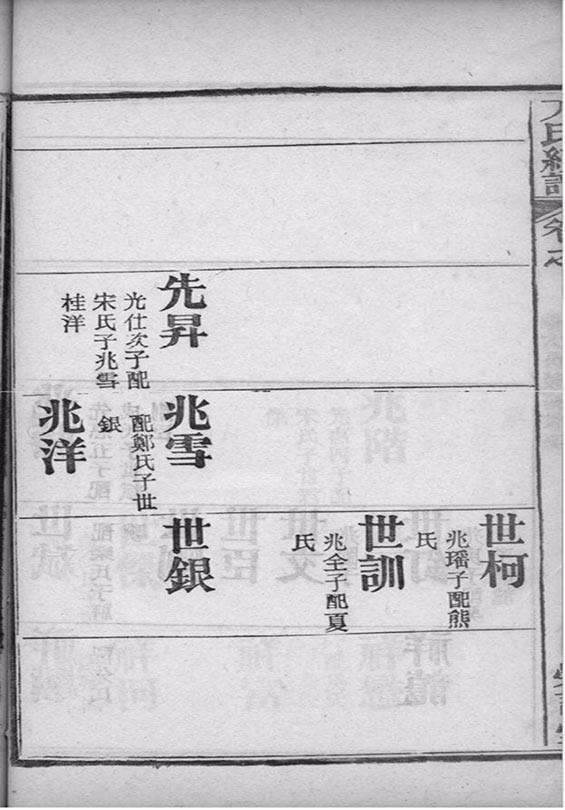 卷之
先昇
光仕次子配
宋氏子兆雪
桂洋
兆雪
配鄭氏子世
銀
兆洋
世柯
兆瑤子配熊
氏
世訓
兆全子配夏
氏
世銀